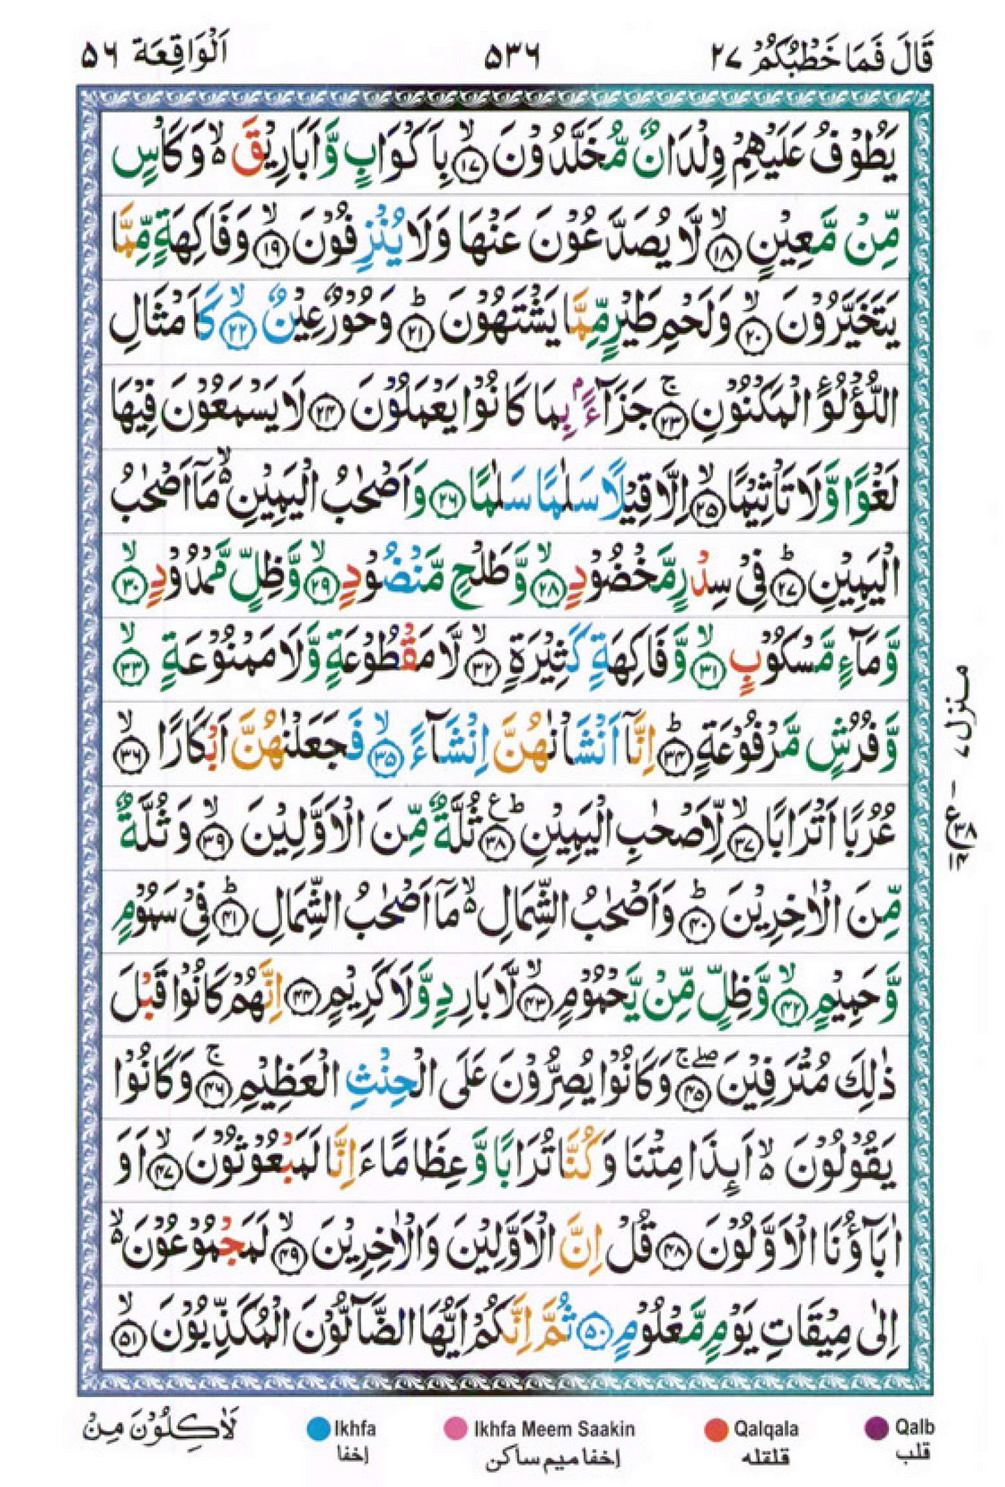 قَالَ فَمَا خَطْبُكُمْ ٢٧
٥٣٦
اَلْوَاقِعَة ٥٦
يَطُوْفُ عَلَيْهِمْ وِلْدَانٌ مُّخَلَّدُوْنَ ۙ﴿۱۷﴾ بِاَكْوَابٍ وَّاَبَارِيْقَ ۙ۬ وَكَاْسٍ
مِّنْ مَّعِيْنٍ ۙ﴿۱۸﴾ لَّا يُصَدَّعُوْنَ عَنْهَا وَلَا يُنْزِفُوْنَ ۙ﴿۱۹﴾ وَفَاكِهَةٍ مِّمَّا
يَتَخَيَّرُوْنَ ۙ﴿۲۰﴾ وَلَحْمِ طَيْرٍ مِّمَّا يَشْتَهُوْنَ ؕ﴿۲۱﴾ وَحُوْرٌ عِيْنٌ ۙ﴿۲۲﴾ كَاَمْثَالِ
اللُّؤْلُؤِ الْمَكْنُوْنِ ۚ﴿۲۳﴾ جَزَآءًۢ بِمَا كَانُوْا يَعْمَلُوْنَ ﴿۲۴﴾ لَا يَسْمَعُوْنَ فِيْهَا
لَغْوًا وَّلَا تَاْثِيْمًا ۙ﴿۲۵﴾ اِلَّا قِيْلًا سَلٰمًا سَلٰمًا ﴿۲۶﴾ وَاَصْحٰبُ الْيَمِيْنِ ۙ۬ مَاۤ اَصْحٰبُ
الْيَمِيْنِ ؕ﴿۲۷﴾ فِيْ سِدْرٍ مَّخْضُوْدٍ ۙ﴿۲۸﴾ وَّطَلْحٍ مَّنْضُوْدٍ ۙ﴿۲۹﴾ وَّظِلٍّ مَّمْدُوْدٍ ۙ﴿۳۰﴾
وَّمَآءٍ مَّسْكُوْبٍ ۙ﴿۳۱﴾ وَّفَاكِهَةٍ كَثِيْرَةٍ ۙ﴿۳۲﴾ لَّا مَقْطُوْعَةٍ وَّلَا مَمْنُوْعَةٍ ۙ﴿۳۳﴾
وَّفُرُشٍ مَّرْفُوْعَةٍ ؕ﴿۳۴﴾ اِنَّاۤ اَنْشَاْنٰهُنَّ اِنْشَآءً ۙ﴿۳۵﴾ فَجَعَلْنٰهُنَّ اَبْكَارًا ۙ﴿۳۶﴾
عُرُبًا اَتْرَابًا ۙ﴿۳۷﴾ لِّاَصْحٰبِ الْيَمِيْنِ ؕ﴿۳۸﴾ ثُلَّةٌ مِّنَ الْاَوَّلِيْنَ ۙ﴿۳۹﴾ وَثُلَّةٌ
مِّنَ الْاٰخِرِيْنَ ؕ﴿۴۰﴾ وَاَصْحٰبُ الشِّمَالِ ۙ۬ مَاۤ اَصْحٰبُ الشِّمَالِ ؕ﴿۴۱﴾ فِيْ سَمُوْمٍ
وَّحَمِيْمٍ ۙ﴿۴۲﴾ وَّظِلٍّ مِّنْ يَّحْمُوْمٍ ۙ﴿۴۳﴾ لَّا بَارِدٍ وَّلَا كَرِيْمٍ ﴿۴۴﴾ اِنَّهُمْ كَانُوْا قَبْلَ
ذٰلِكَ مُتْرَفِيْنَ ۚۖ﴿۴۵﴾ وَكَانُوْا يُصِرُّوْنَ عَلَى الْحِنْثِ الْعَظِيْمِ ۚ﴿۴۶﴾ وَكَانُوْا
يَقُوْلُوْنَ ۙ۬ اَىِٕذَا مِتْنَا وَكُنَّا تُرَابًا وَّعِظَامًا ءَاِنَّا لَمَبْعُوْثُوْنَ ۙ﴿۴۷﴾ اَوَ
اٰبَآؤُنَا الْاَوَّلُوْنَ ﴿۴۸﴾ قُلْ اِنَّ الْاَوَّلِيْنَ وَالْاٰخِرِيْنَ ۙ﴿۴۹﴾ لَمَجْمُوْعُوْنَ ۙ۬
اِلٰى مِيْقَاتِ يَوْمٍ مَّعْلُوْمٍ ﴿۵۰﴾ ثُمَّ اِنَّكُمْ اَيُّهَا الضَّآلُّوْنَ الْمُكَذِّبُوْنَ ۙ﴿۵۱﴾
منزل ٧
Qalb قلب
Qalqala قلقله
Ikhfa Meem Saakin إخفا ميم ساكن
Ikhfa إخفا
لَاٰكِلُوْنَ مِنْ